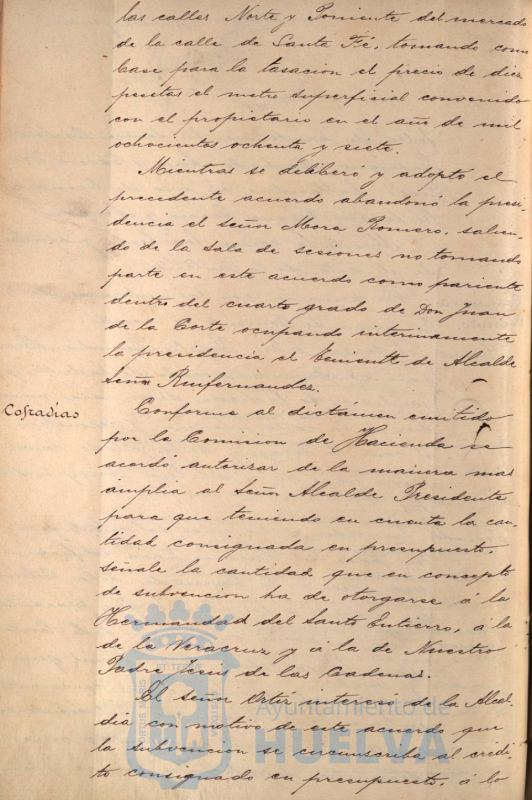 las calles Norte y Poniente del mercado
de la calle de Santa Fé, tomando como
base para la tasacion el precio de diez
pesetas el metro superficial convenido
con el propietario en el año de mil
ochocientos ochenta y siete.
Mientras se deliberó y adoptó el
precedente acuerdo abandonó la presi
dencia el señor Mora Romero, salien
do de la sala de sesiones no tomando
parte en este acuerdo como pariente
dentro del cuarto grado de Don Juan
de la Corte ocupando interinamente
la presidencia el teniente de Alcalde
Señor Ruifernandez.
Cofradías
Conforme al dictámen emitido
por la Comision de Hacienda se
acordó autorizar de la manera mas
ámplia al Señor Alcalde Presidente
para que teniendo en cuenta la can-
tidad consignada en presupuesto,
señale la cantidad que en concepto
de subvencion ha de otorgarse á la
Hermandad del Santo Entierro, á la
de la Veracruz y á la de Nuestro
Padre Jesús de las Cadenas.
El señor Ortiz interesó de la Alcal-
día con motivo de este acuerdo que
la subvencion se circunscriba al crédi-
to consignado en presupuesto, á lo
Ayuntamiento de
HUELVA